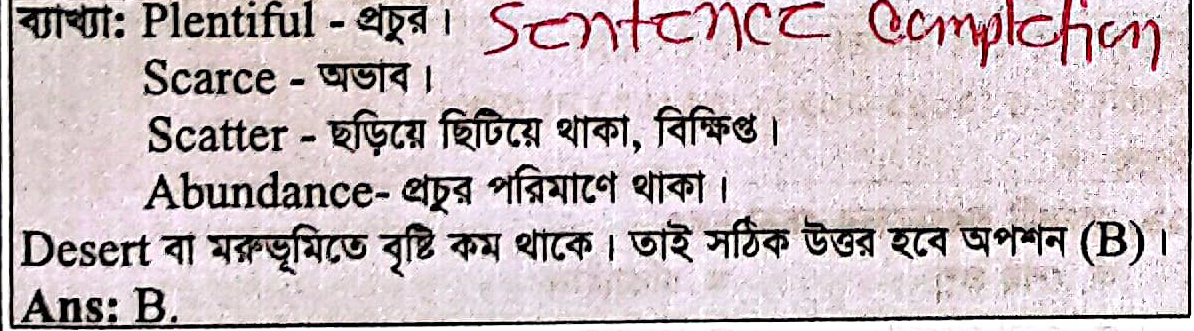 ব্যাখ্যা: Plentiful - প্রচুর। Sentence Completion
Scarce - অভাব।
Scatter - ছড়িয়ে ছিটিয়ে থাকা, বিক্ষিপ্ত।
Abundance- প্রচুর পরিমাণে থাকা।
Desert বা মরুভূমিতে বৃষ্টি কম থাকে। তাই সঠিক উত্তর হবে অপশন (B)।
Ans: B.